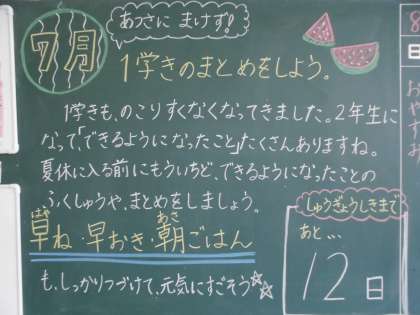 あつさに まけず!
7月
1学きのまとめをしよう。
1学きも、のこりすくなくなってきました。2年生に
なって、「できるようになったこと」たくさんありますね。
夏休に入る前にもういちど、できるようになったことの
ふくしゅうや、まとめをしましょう。
はや あさ
早ね・早おき・朝ごはん
も、しっかりつづけて、元気にすごそう☆☆
しゅうぎょうしきまで
あと…
12日
日
お